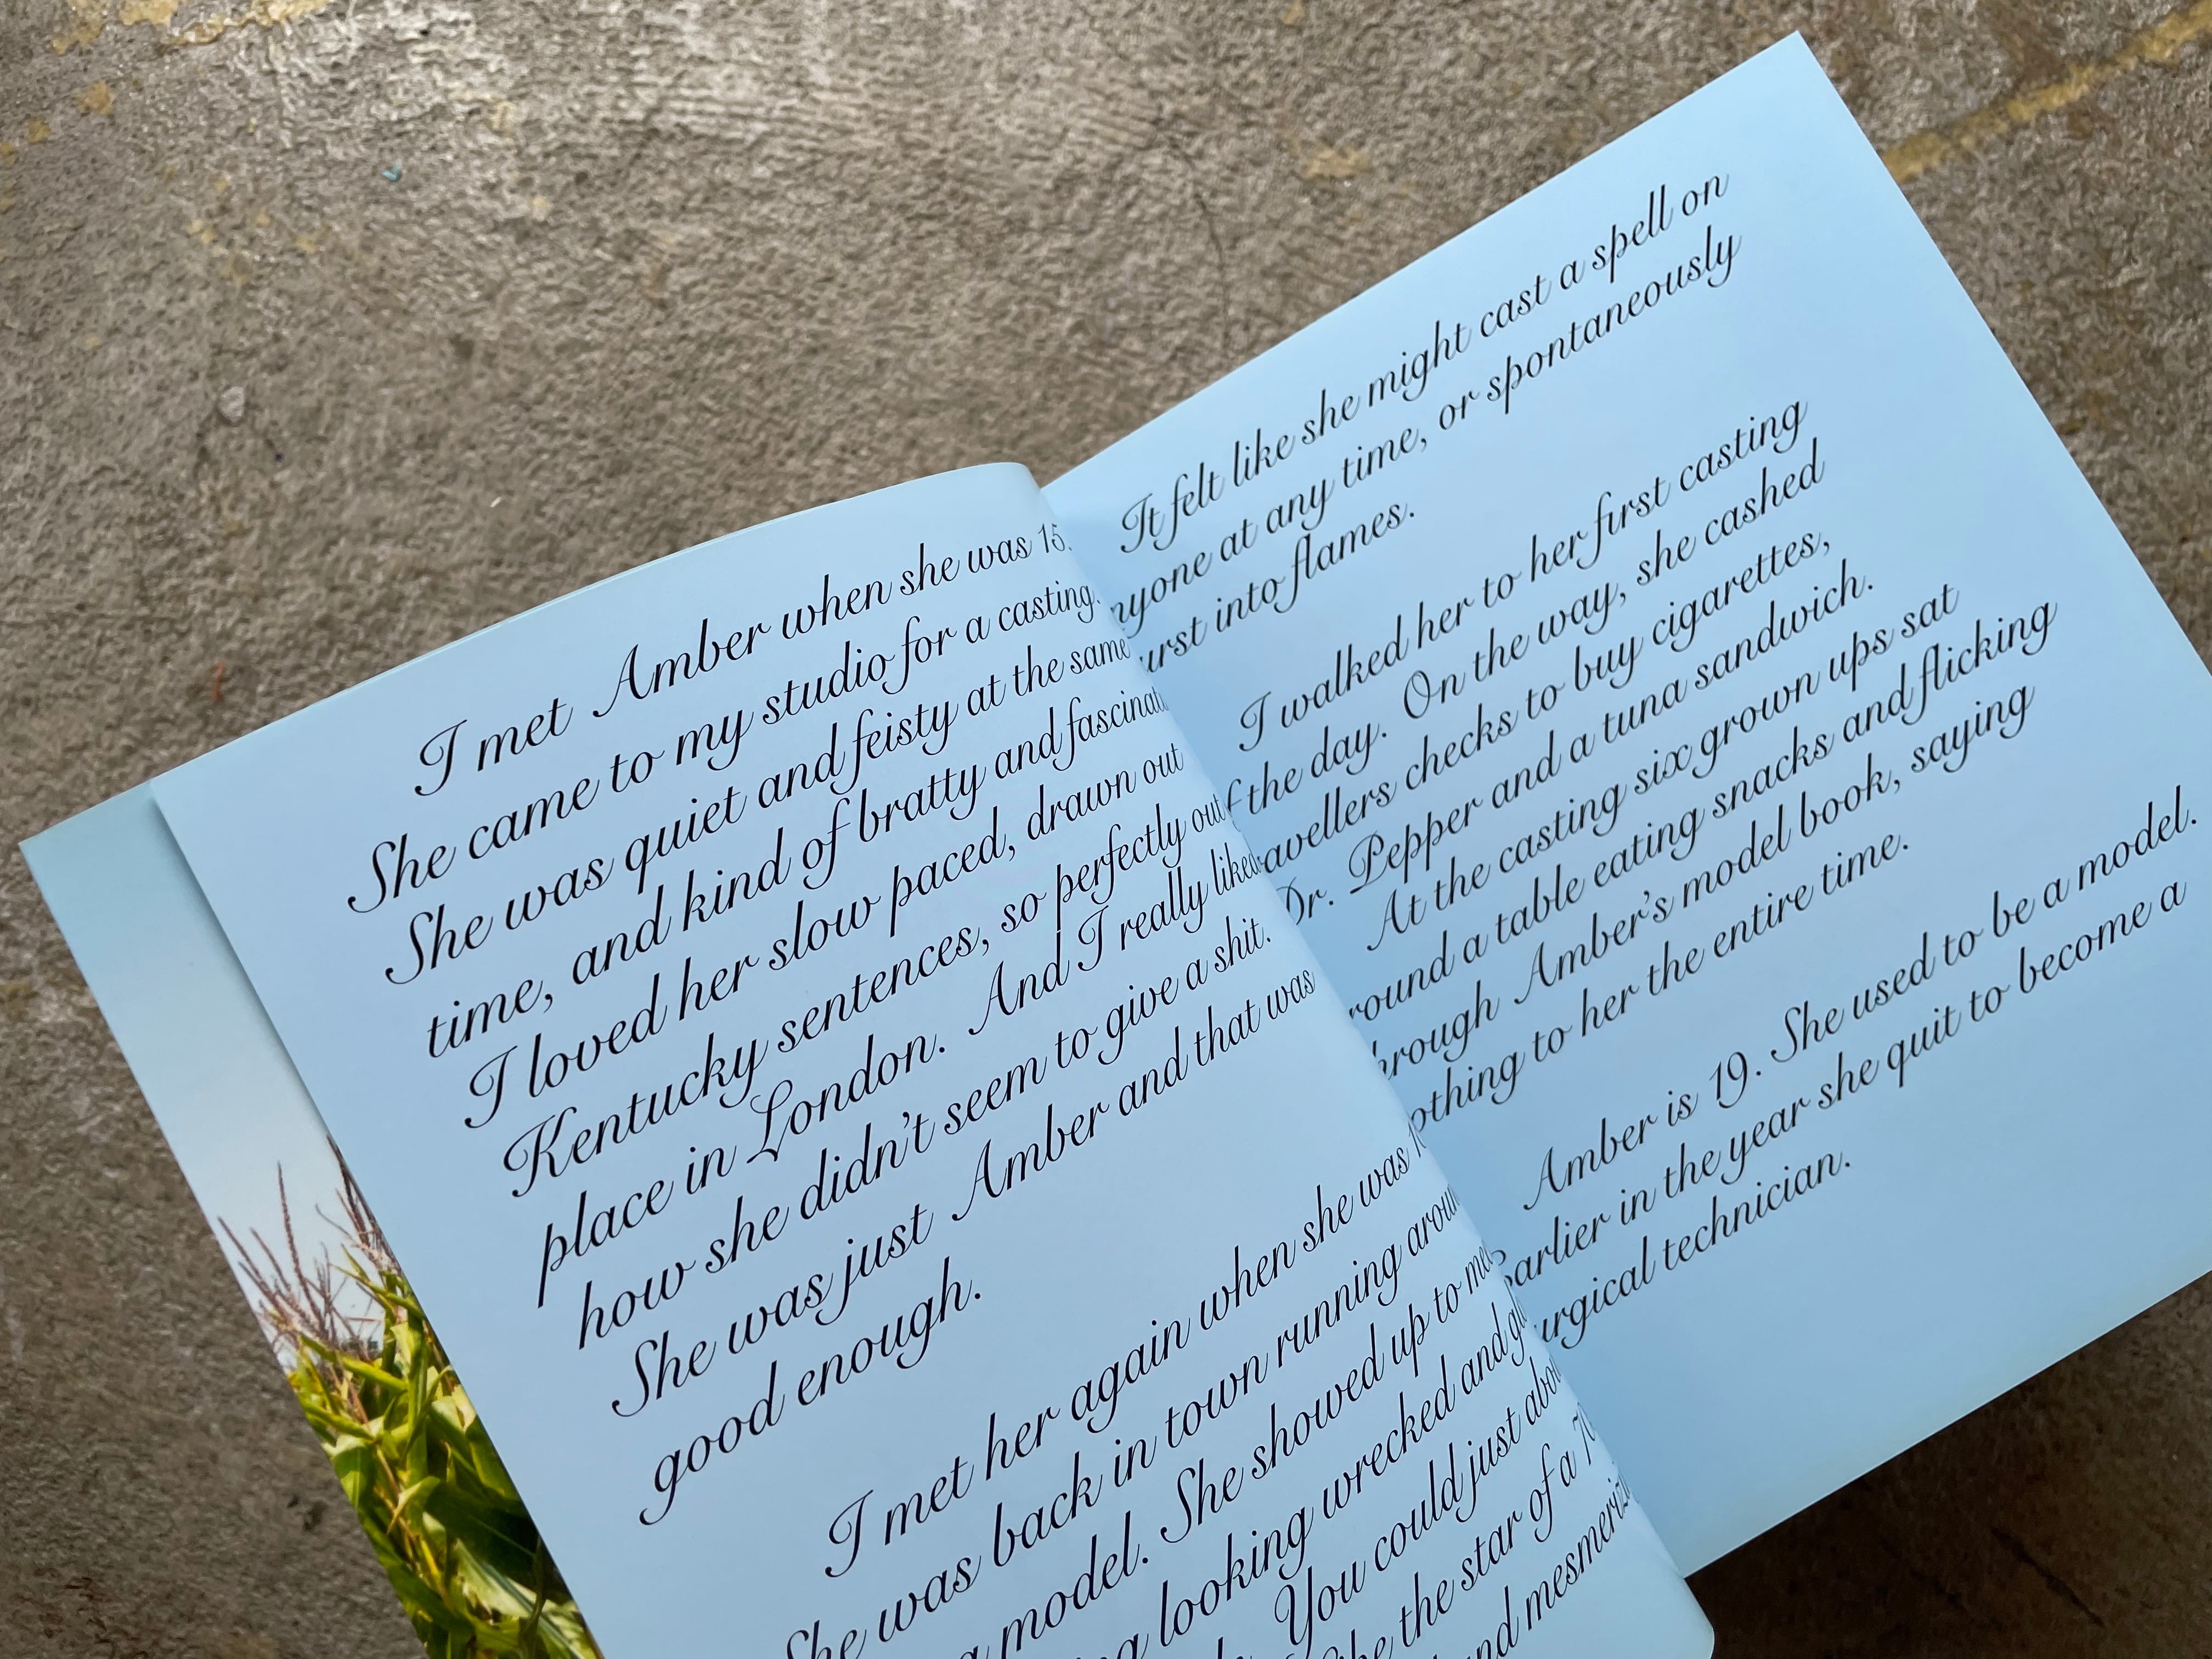 I met Amber when she was 15.
She came to my studio for a casting.
She was quiet and feisty at the same
time, and kind of bratty and
I loved her slow paced, drawn out
Kentucky sentences, so perfectly out
place in London. And I really liked
how she didn't seem to give a shit.
She was just Amber and that was
good enough.
I met her again when she was
She was back in town running
a model. She showed up to
looking wrecked and
You could just
the star of a
and
It felt like she might cast a spell on
at any time, or spontaneously
into flames.
I walked her to her first casting
the day. On the way, she cashed
checks to buy cigarettes,
Dr. Pepper and a tuna sandwich.
At the casting six grown ups sat
a table eating snacks and flicking
Amber's model book, saying
to her the entire time.
Amber is 19. She used to be a model.
in the year she quit to become a
technician.